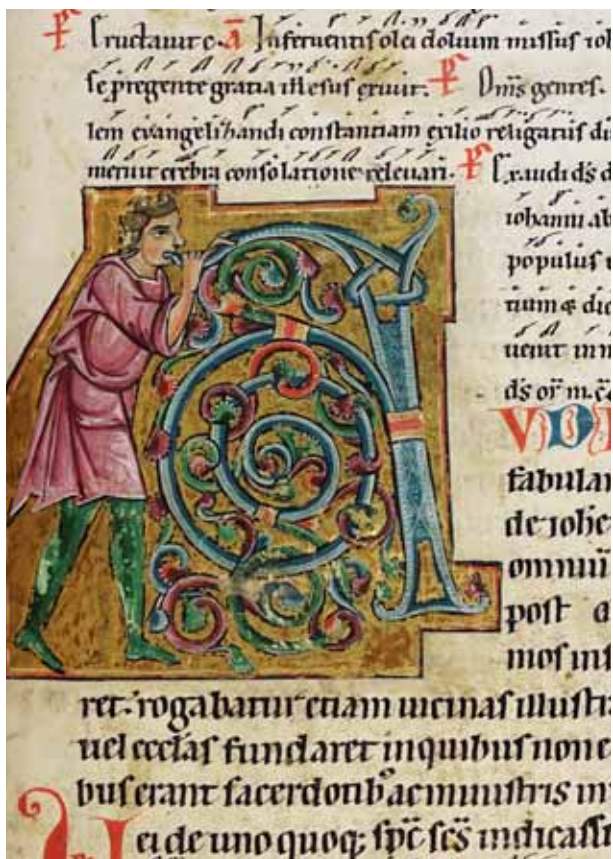 Eructauit c. a Inferuentis olei dolium missus ioh
se ꝓtegente gratia illesus exiuit. Oms gentes.
lem evangelizandi constantiam exilio religatus di
meruit crebra consolatione releuari. Exaudi ds d
iohanni ab
populus
tium & dic
uenit inn
ds or m.
AUDI
fabulam
de iohe
omniū
post
mos ins
ret. rogabatur etiam uicinas illustr
uel ecclas fundaret inquibus non e
bus erant sacerdotib; ac ministris in
ei de uno quoq; spc scs indicass